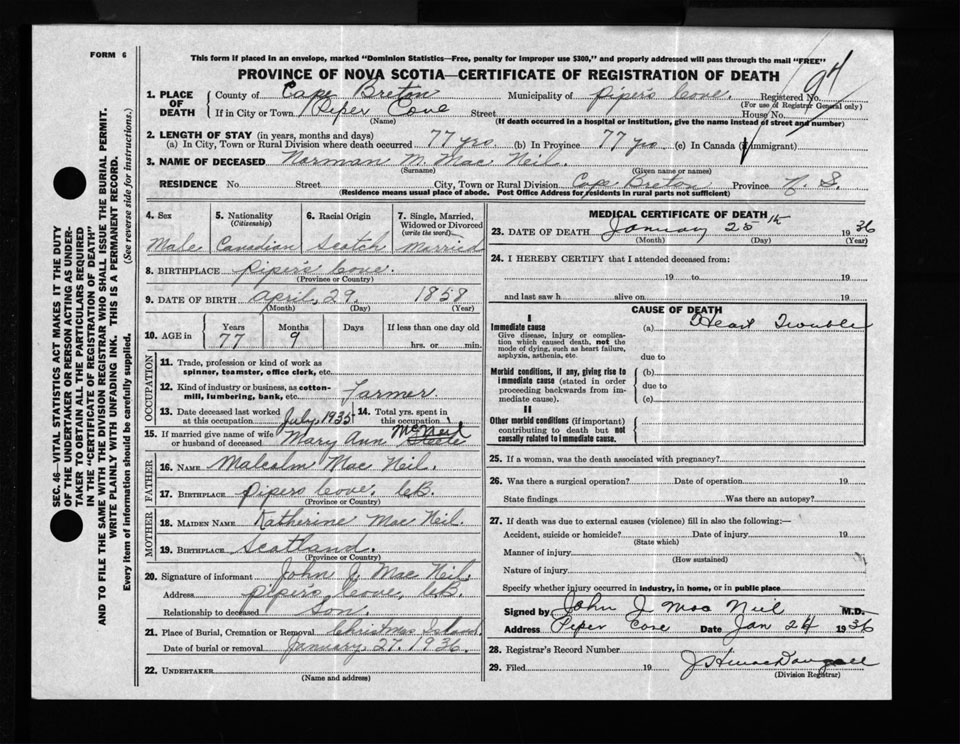 FORM 6
This form if placed in an envelope, marked "Dominion Statistics—Free, penalty for improper use $300," and properly addressed will pass through the mail "FREE"
PROVINCE OF NOVA SCOTIA—CERTIFICATE OF REGISTRATION OF DEATH
94
1. PLACE OF DEATH County of Cape Breton Municipality of Piper's Cove. Registered No.
(For use of Registrar General only)
If in City or Town Piper Cove Street House No.
(Name) (If death occurred in a hospital or institution, give the name instead of street and number)
2. LENGTH OF STAY (in years, months and days)
(a) In City, Town or Rural Division where death occurred 77 yrs. (b) In Province 77 yrs. (c) In Canada (if immigrant)
3. NAME OF DECEASED Norman M. Mac Neil.
(Surname) (Given name or names)
RESIDENCE No. Street City, Town or Rural Division Cape Breton Province N. S.
(Residence means usual place of abode. Post Office Address for residents in rural parts not sufficient)
4. Sex 5. Nationality 6. Racial Origin 7. Single, Married, Widowed or Divorced
(Citizenship) (write the word)
Male Canadian Scotch Married
8. BIRTHPLACE Piper's Cove.
(Province or Country)
9. DATE OF BIRTH April, 29. 1858
(Month) (Day) (Year)
10. AGE in Years Months Days If less than one day old
77 9 hrs. or min.
OCCUPATION
11. Trade, profession or kind of work as spinner, teamster, office clerk, etc.
12. Kind of industry or business, as cotton-mill, lumbering, bank, etc. Farmer.
13. Date deceased last worked at this occupation July, 1935 14. Total yrs. spent in this occupation
15. If married give name of wife or husband of deceased Mary Ann McNeil
FATHER
16. NAME Malcolm Mac Neil.
17. BIRTHPLACE Pipers Cove, C.B.
(Province or Country)
MOTHER
18. MAIDEN NAME Katherine Mac Neil.
19. BIRTHPLACE Scotland.
(Province or Country)
20. Signature of informant John J. Mac Neil.
Address Piper's Cove, C.B.
Relationship to deceased Son.
21. Place of Burial, Cremation or Removal Christmas Island.
Date of burial or removal January, 27. 1936.
22. UNDERTAKER
(Name and address)
MEDICAL CERTIFICATE OF DEATH
23. DATE OF DEATH January 25th 1936
(Month) (Day) (Year)
24. I HEREBY CERTIFY that I attended deceased from:
19 to 19
and last saw h alive on 19
CAUSE OF DEATH
I
Immediate cause (a) Heart Trouble
Give disease, injury or complication which caused death, not the mode of dying, such as heart failure, asphyxia, asthenia, etc.
due to
Morbid conditions, if any, giving rise to immediate cause (stated in order proceeding backwards from immediate cause).
(b)
due to
(c)
II
Other morbid conditions (if important) contributing to death but not causally related to immediate cause.
25. If a woman, was the death associated with pregnancy?
26. Was there a surgical operation? Date of operation 19
State findings Was there an autopsy?
27. If death was due to external causes (violence) fill in also the following:—
Accident, suicide or homicide? Date of injury 19
(State which)
Manner of injury
(How sustained)
Nature of injury
Specify whether injury occurred in industry, in home, or in public place
Signed by John J Mac Neil M.D.
Address Piper Cove Date Jan 26 1936
28. Registrar's Record Number
29. Filed 19
(Division Registrar)
SEC. 46—VITAL STATISTICS ACT MAKES IT THE DUTY
OF THE UNDERTAKER OR PERSON ACTING AS UNDER-
TAKER TO OBTAIN ALL THE PARTICULARS REQUIRED
IN THE "CERTIFICATE OF REGISTRATION OF DEATH"
AND TO FILE THE SAME WITH THE DIVISION REGISTRAR WHO SHALL ISSUE THE BURIAL PERMIT.
WRITE PLAINLY WITH UNFADING INK. THIS IS A PERMANENT RECORD.
Every item of information should be carefully supplied. (See reverse side for instructions.)